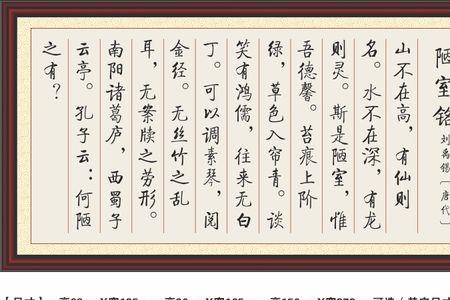 陋室铭
刘禹锡〔唐代〕
山不在高，有仙则
名。水不在深，有龙
则灵。斯是陋室，惟
吾德馨。苔痕上阶
绿，草色入帘青。谈
笑有鸿儒，往来无白
丁。可以调素琴，阅
金经。无丝竹之乱
耳，无案牍之劳形。
南阳诸葛庐，西蜀子
云亭。孔子云：何陋
之有？